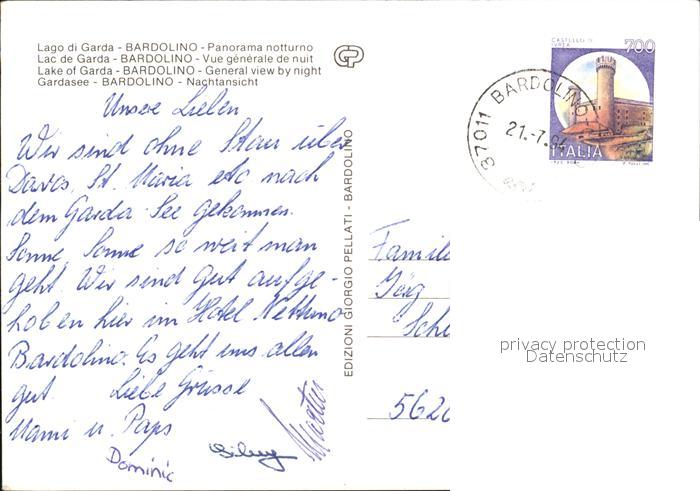 Lago di Garda - BARDOLINO - Panorama notturno
Lac de Garda - BARDOLINO - Vue générale de nuit
Lake of Garda - BARDOLINO - General view by night
Gardasee - BARDOLINO - Nachtansicht
Unsere Lieben
Wir sind ohne Stau über
Davos, St. Maria etc nach
dem Garda-See gekommen.
Sonne, Sonne so weit man
geht. Wir sind gut aufge-
hoben hier im Hotel Nettuno
Bardolino. Es geht uns allen
gut. Liebe Grüsse
Mami u. Paps
Dominic
Martin
EDIZIONI GIORGIO PELLATI - BARDOLINO
CASTELLO DI
IVREA
700
ITALIA
37011 BARDOLINO
21.-7.
Famil
Jörg
Sch
562
privacy protection
Datenschutz